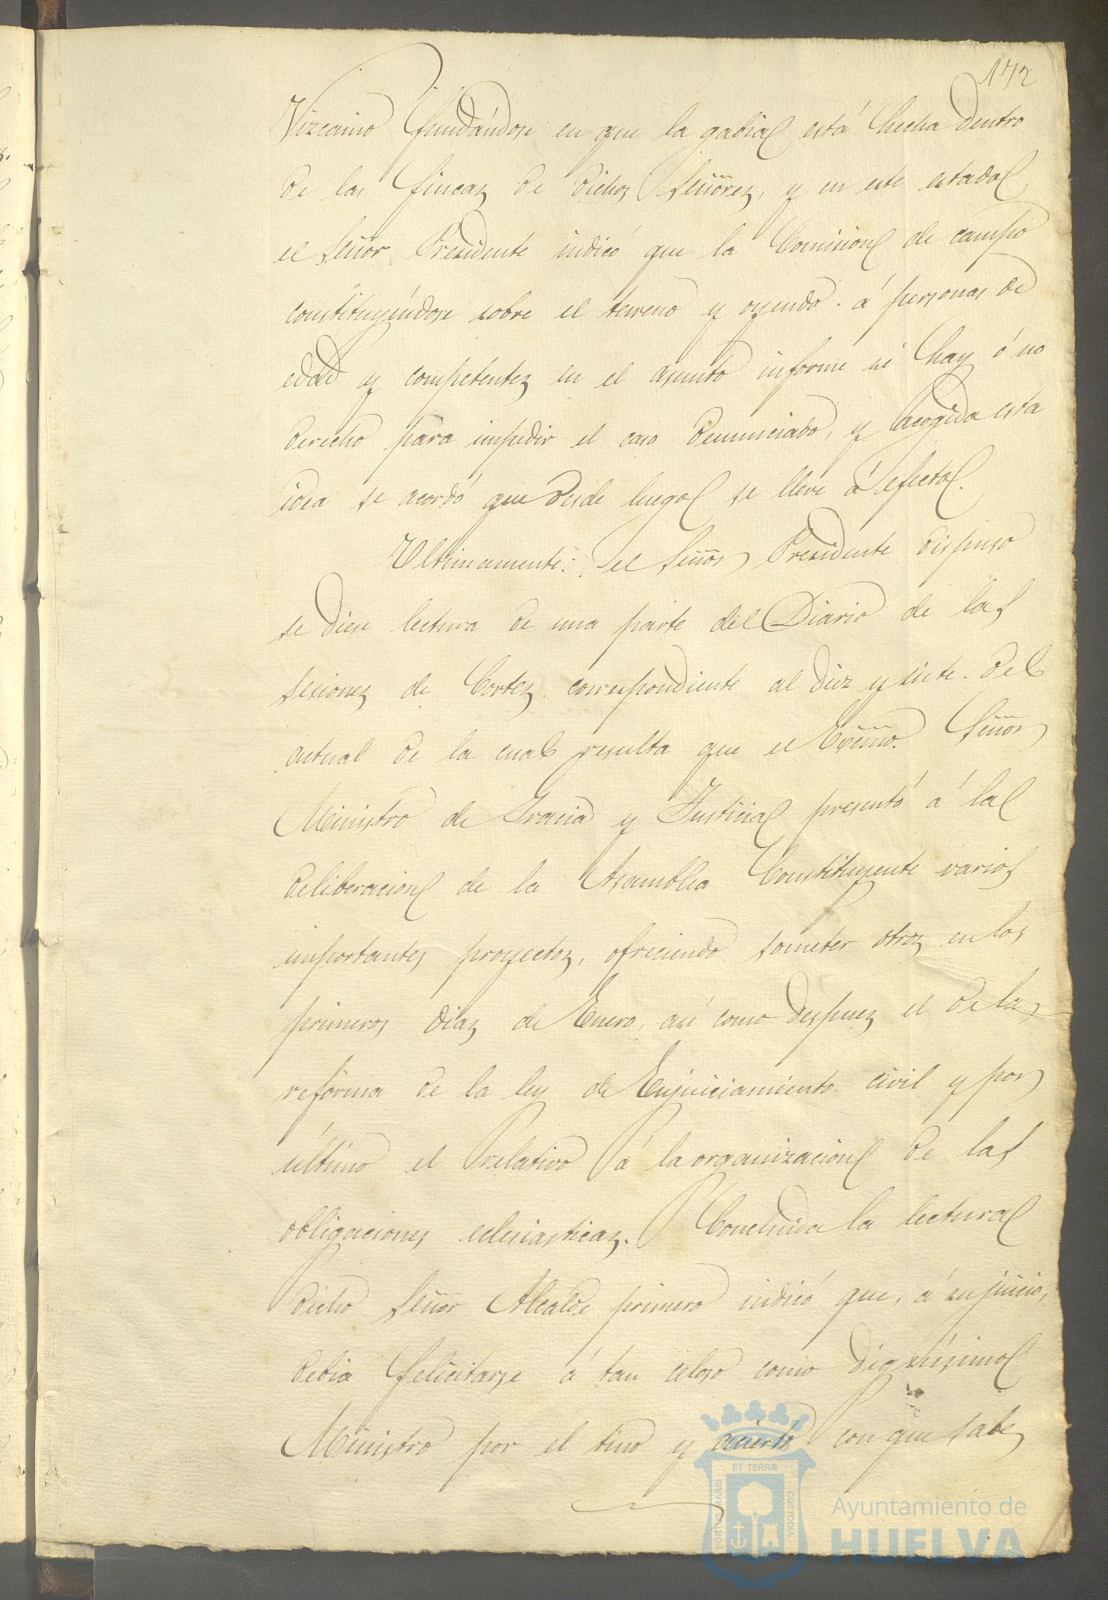 172
Vizcaino fundándose en que la gavia está hecha dentro
de las fincas de dichos Señores, y en este estado
el Señor Presidente indicó que la Comision de campo
constituyéndose sobre el terreno y oyendo á personas de
edad y competentes en el asunto informe si hay ó no
derecho para impedir el caso denunciado, y acogida esta
idea se acordó que desde luego se lleve á efecto.
Ultimamente: el Señor Presidente dispuso
se diese lectura de una parte del Diario de las
sesiones de Cortes correspondiente al diez y siete del
actual de la cual resulta que el Excmo. Señor
Ministro de Gracia y Justicia presentó á la
deliberacion de la Asamblea Constituyente varios
importantes proyectos, ofreciendo someter otros en los
primeros dias de Enero, asi como despues el de la
reforma de la ley de Enjuiciamiento civil y por
último el relativo á la organizacion de las
obligaciones eclesiasticas. Concluida la lectura
dicho Señor Alcalde primero indicó que, á su juicio,
debia felicitarse á tan celoso como dignísimo
Ministro por el tino y acierto con que sabe
PORTUS MARIS
ET TERRÆ
CUSTODIA
Ayuntamiento de
HUELVA